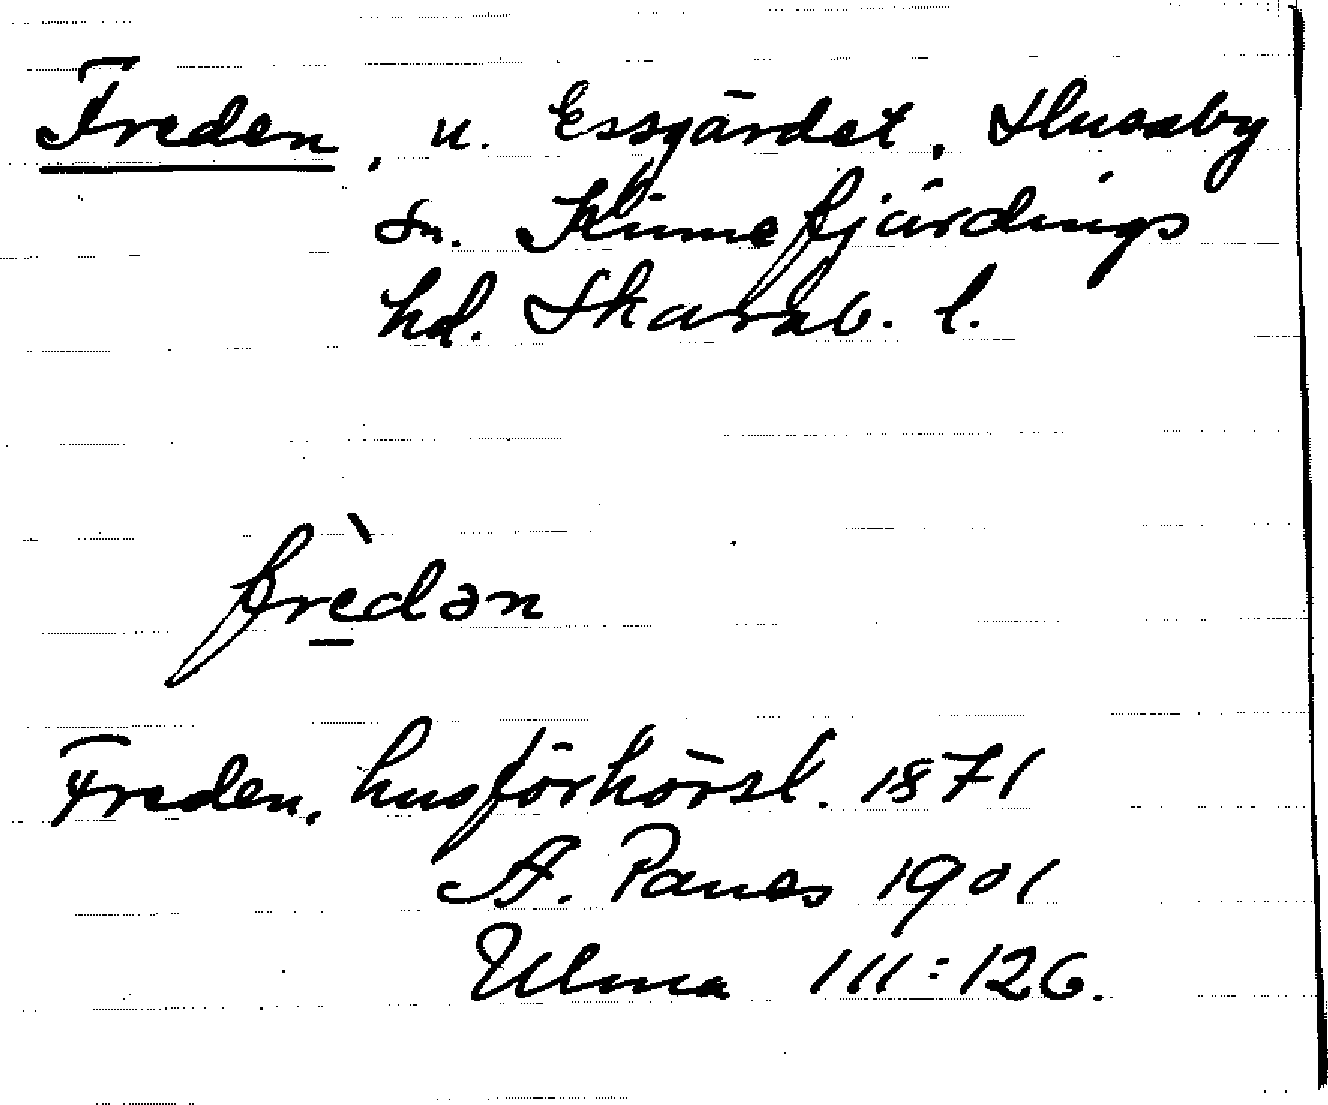 Freden, u. Essgärdet, Husaby
sn. Kinnefjärdings
hd. Skarab. l.
frèdən
Freden, husförhörsl. 1871
A. Ranes 1901
Ulma 111:126.